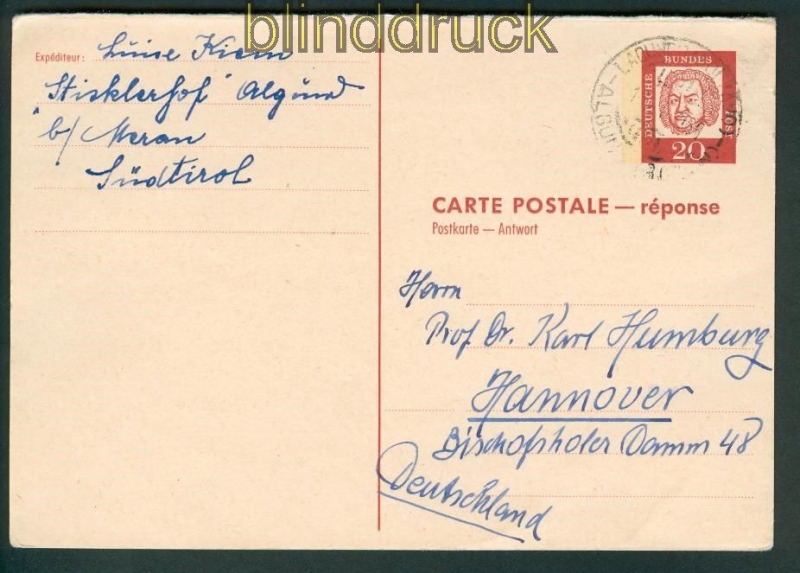 blinddruck
Expéditeur: Luise Kiem
"Sticklerhof" Algund
b/ Meran
Südtirol
DEUTSCHE BUNDES
20
CARTE POSTALE — réponse
Postkarte — Antwort
Herrn
Prof. Dr. Karl Humburg
Hannover
Bischofsholer Damm 48
Deutschland